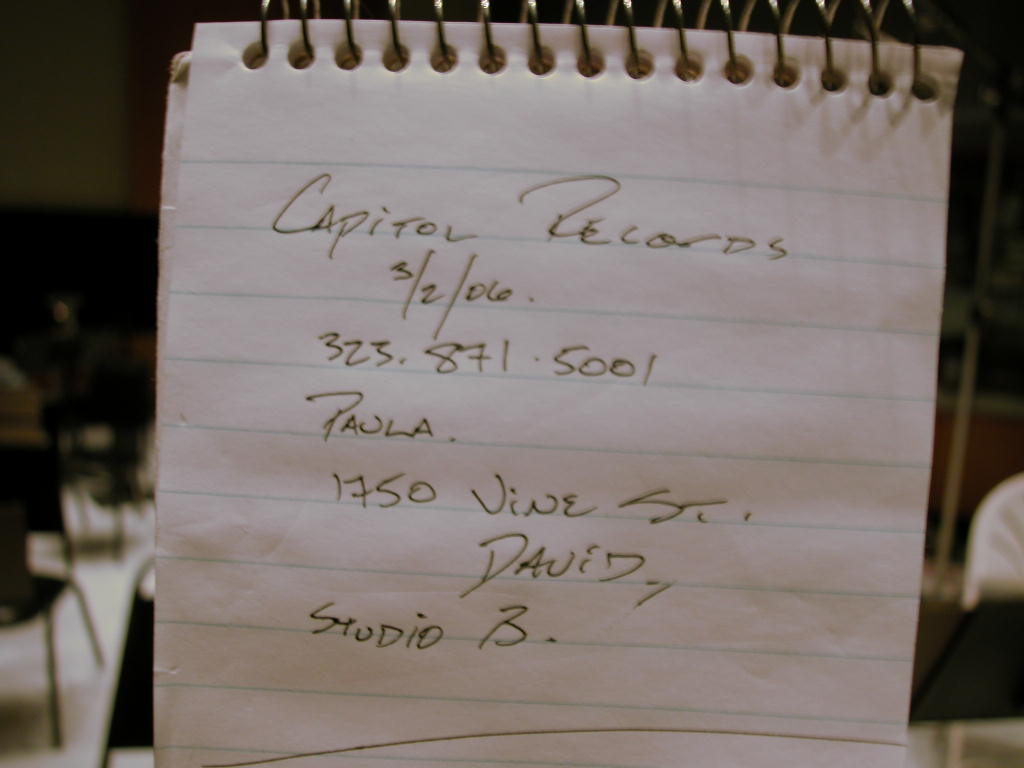 CAPITOL RECORDS
3/2/06.
323.871.5001
PAULA.
1750 VINE ST.
DAVID,
STUDIO B.